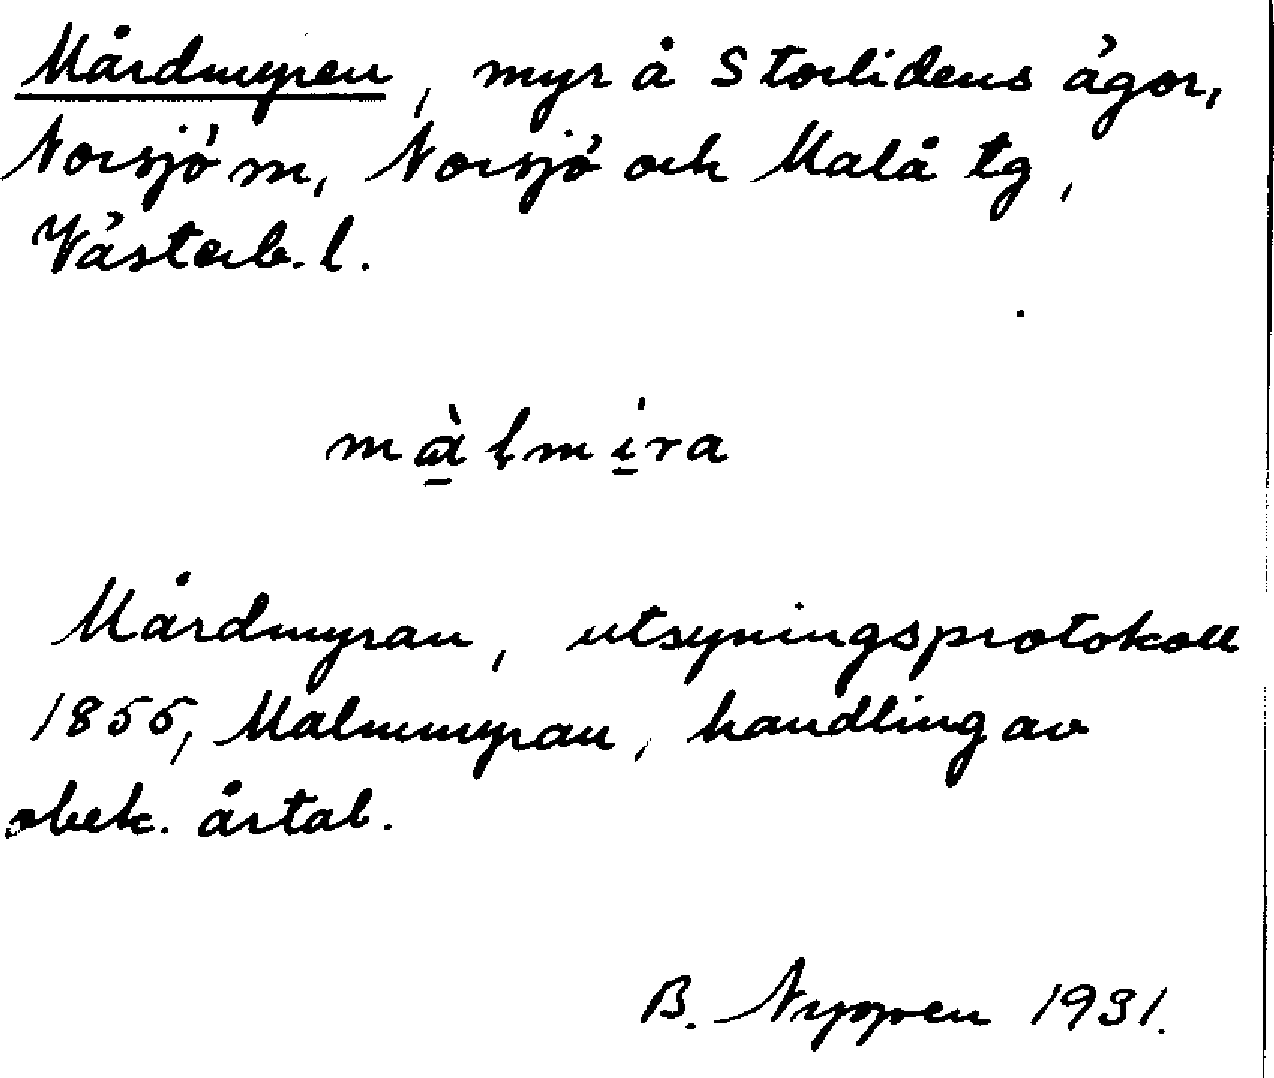 Mårdmyren, myr å Storlidens ägor,
Norsjö m, Norsjö och Malå tg,
Västerb. l.
màlmira
Mårdmyran, utsyningsprotokoll
1855, Malmmyran, handling av
obek. årtal.
B. Nyppen 1931.